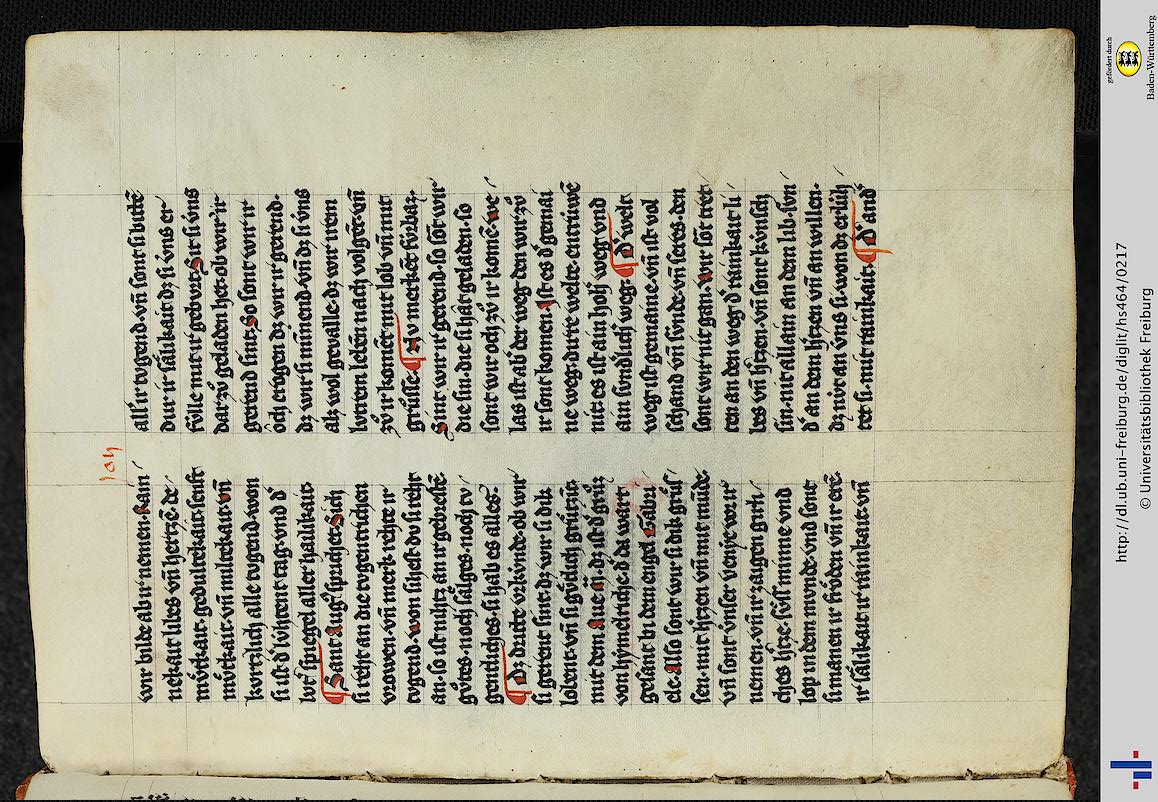 wir bilde ab ir nemen. Rain
nekait libes vn̄ hertzē. de
mv̊tkait. gedultekait. senft
mv̊tkait. vn̄ miltekait. vn̄
kvrtzlich alle tvgend. won
si ist d' lv́htent tag. vnd d'
spiegel aller hailikait.
Sant Aug' sprichet. Sich
si reht an die tvgentrichen
vrowen. vn̄ merk rehte ir
tvgend. won sihest dv si reht
an. so ist nihtz an ir gebrestē.
gv̊tes. noch sáliges. noch
gentliches. si hab es alles.
Dz dritte vrkvnde. ob wir
si gerent sint. dz wir si dik
lobent. vn̄ si gv̊tlich grv́zint.
mit dem Aue
von hymelriche. d' da wart
gesant bi dem engel Gabri
ele. also sont wir si dik grv́s
sen. mit h'tzen vn̄ mit mv́nde.
vn̄ sont vnser venige wir ir
nemen. vn̄ ir zaigen gv̊tli
ches h'tze. sv́ss minne vnd
lop in dem mvnde. vnd sont
si manen ir frȏden vn̄ ir erē.
ir sálikait ir rainkait. vn̄
104
all ir tvgend. vn̄ sont si bittē
dur ir sálikait dz si vns er
fv́lle mit ir gebvrt. Dir si vns
dar zv̊ geladen het. ob wir ir
gerend sint. so sont wir ir
ȏch erzogen dz wir ir gerend.
dz wir si minend. vn̄ dz si vns
alz wol gevalle. dz wir irem
lvtren leben nach volgēt. vn̄
zv̊ ir komēt mit lob vn̄ mit
grv́sse. Nv merkēt fv́rbaz.
Sint wir ir gerend. so sȏt wir
die sin. die si hat geladen. so
sont wir och zv̊ ir komē. we
las ist ab' der weg den wir zv̊
ir sont komen. Ist es d' gemai
ne weg. dirre welte entriwē
nit. es ist ain holtz weg vnd
ain sv́ndlich weg. d' welt
weg ist gemaine. vn̄ ist vol
schand vn̄ sv́nde. vn̄ seres. den
sont wir nit gan. wir sȏt tret
ten an den weg d' rainkait li
bes vn̄ h'tzen. vn̄ sont kv́nsch
sin. nit allain an dem lib. svn
d' an dem h'tzen vn̄ an willen.
dz niht an v́ns si. won dz erlv́h
tet si. mit rainkait. d' and'
http://dl.ub.uni-freiburg.de/diglit/hs464/0217
© Universitätsbibliothek Freiburg
gefördert durch
Baden-Württemberg